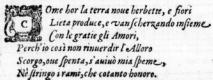 COme hor la terra noue herbette, e fiori
Lieta produce, e van scherzando insieme
Con le gratie gli Amori,
Perch'io così non rinuerdir l'Alloro
Scorgo, oue spenta, s'auuiò mia speme,
Nè stringo i rami, che cotanto honoro.